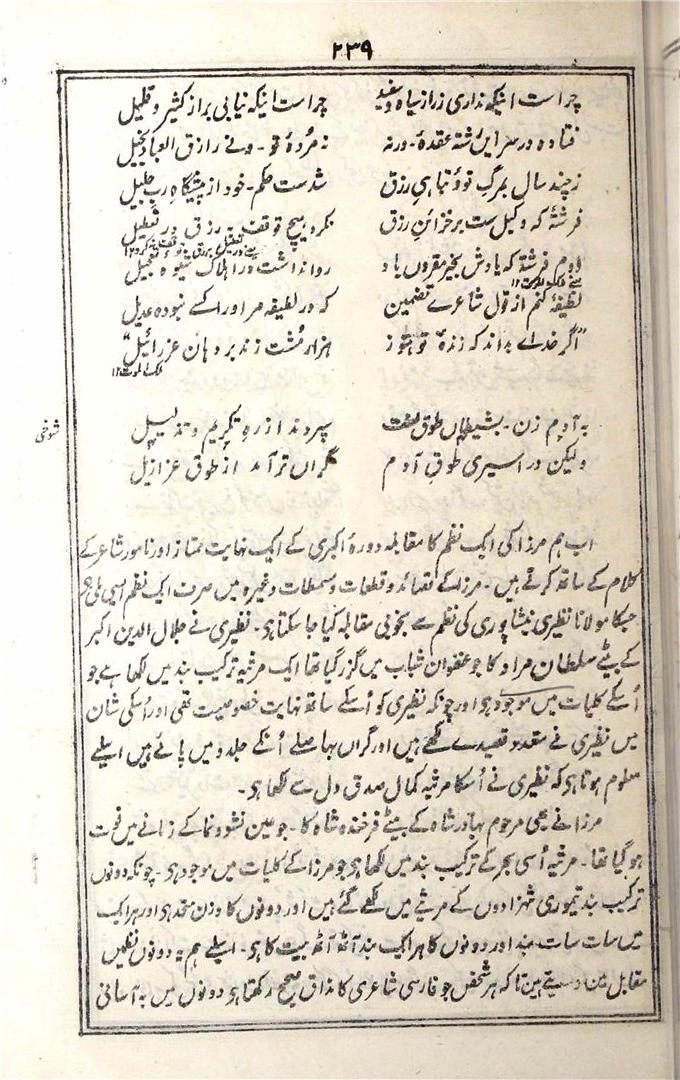 ۲۳۹
چراست اینکہ نداری زر از سیاہ و سفید چراست اینکہ نیابی بر از کثیر و قلیل
فتادہ در سر این رشتہ عقدۂ۔ ورنہ نہ مُردۂ تو۔ ونے رازق العباد بخیل
ز چند سال بمرگِ تو و تباہیِ رزق شدست حکم۔ خود از پیشگاہِ ربِ جلیل
فرشتۂ کہ وکیل ست بر خزائنِ رزق نکرد ہیچ توقف بہ رزق در تعطیل
دوم فرشتہ کہ یادش بخیر مقرون باد روا نداشت در اہلاک شیوۂ تعجیل
لطیفۂ کنم از قول شاعرے تضمین کہ در لطیفہ مر او را کسے نبودہ عدیل
"اگر خداے بداند کہ زندۂ تو ہنوز ہزار مُشت زند بر دہانِ عزرائیل"
ملک الموت ۱۲
شوخی
بہ آدم زن۔ بشیطاں طوق لعنت سپردند از رہِ تکریم و تذلیل
ولیکن در اسیری طوقِ آدم گراں تر آمد از طوق عزازیل
اب ہم مرزا کی ایک نظم کا مقابلہ دورۂ اکبری کے ایک نہایت ممتاز اور نامور شاعر کے
کلام کے ساتھ کرتے ہیں۔ مرزا کے قصائد و قطعات و مسمطات وغیرہ میں صرف ایک نظم ایسی ملی ہے
جسکا مولانا نظیری نیشاپوری کی نظم سے بخوبی مقابلہ کیا جا سکتا ہو۔ نظیری نے جلال الدین اکبر
کے بیٹے سلطان مراد کا جو عنفوان شباب میں گزر گیا تھا ایک مرثیہ ترکیب بند میں لکھا ہے جو
اُسکے کلیات میں موجود ہو اور چونکہ نظیری کو اُسکے ساتھ نہایت خصوصیت تھی اور اُسکی شان
میں نظیری نے متعدد قصیدے لکھے ہیں اور گراں بہا صلے اُنکے جلدو میں پائے ہیں اسلیے
معلوم ہوتا ہی کہ نظیری نے اُسکا مرثیہ کمال صدق دل سے لکھا ہو۔
مرزا نے بھی مرحوم بہادر شاہ کے بیٹے فرخندہ شاہ کا۔ جو عین نشو و نما کے زمانے میں فوت
ہو گیا تھا۔ مرثیہ اُسی بحر کے ترکیب بند میں لکھا ہو جو مرزا کے کلیات میں موجود ہو۔ چونکہ دونوں
ترکیب بند تیموری شہزادوں کے مرثیے میں لکھے گئے ہیں اور دونوں کا وزن متحد ہو اور ہر ایک
میں سات سات بند اور دونوں کا ہر ایک بند آٹھ آٹھ بیت کا ہو۔ اسلیے ہم یہ دونوں نظمیں
مقابل میں دیتے ہین تاکہ ہر شخص جو فارسی شاعری کا مذاق صحیح رکھتا ہو دونوں میں بہ آسانی